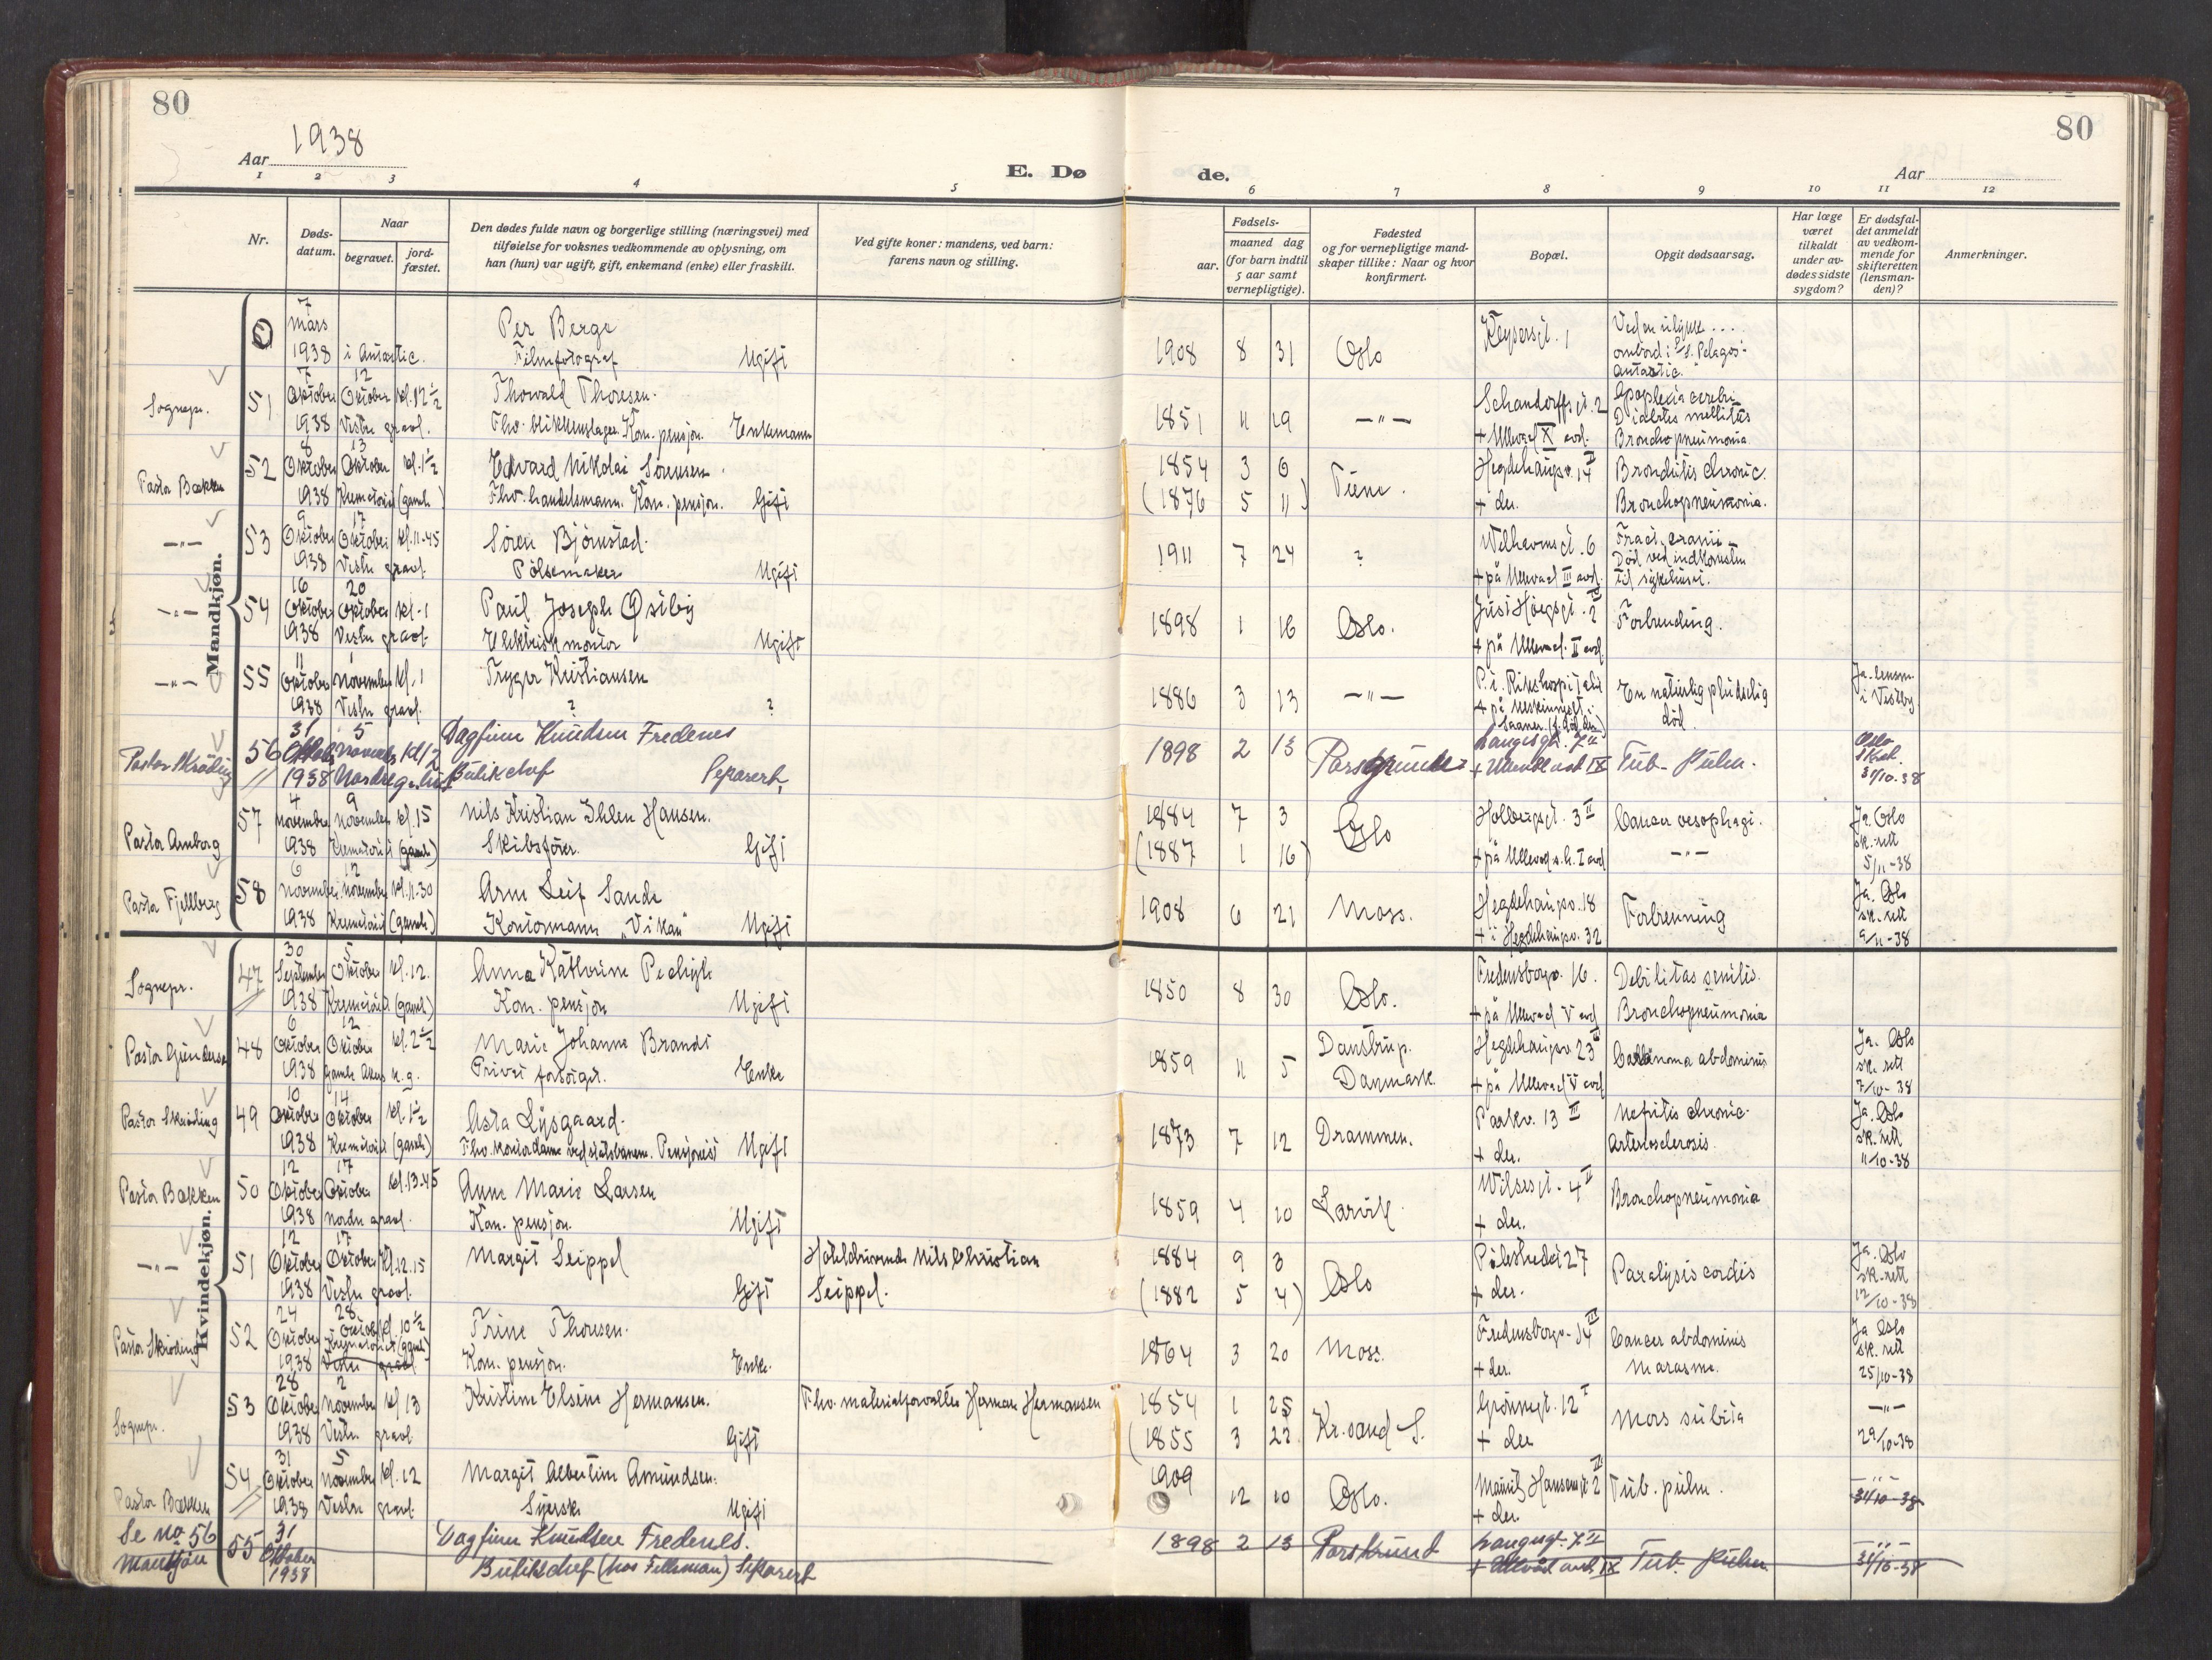 80
80
Aar 1938
E. Døde.
Aar
1 2 3 4 5 6 7 8 9 10 11 12
Nr.
Døds-datum.
Naar
begravet.
jord-fæstet.
Den dødes fulde navn og borgerlige stilling (næringsvei) med
tilføielse for voksnes vedkommende av oplysning, om
han (hun) var ugift, gift, enkemand (enke) eller fraskilt.
Ved gifte koner: mandens, ved barn:
farens navn og stilling.
Fødsels-
aar.
maaned dag
(for barn indtil
5 aar samt
vernepligtige).
Fødested
og for vernepligtige mand-
skaper tillike: Naar og hvor
konfirmert.
Bopæl.
Opgit dødsaarsag.
Har læge
været
tilkaldt
under av-
dødes sidste
sygdom?
Er dødsfal-
det anmeldt
av vedkom-
mende for
skifteretten
(lensman-
den)?
Anmerkninger.
Mandkjøn.
0 7 mars 1938 i Antarctic. Per Berge Filmfotograf Ugift 1908 8 31 Oslo Keysersgt. 1 Ved en ulykke ombord i Pelagos Antarctic.
Sognepr. 51 7 Oktober 1938 12 Oktober Vestre gravl. kl. 12 1/2 Thorvald Thoresen. Fhv. blikkenslager. Kom. pensjon. Enkemann 1851 11 19 -"- Schandorffsgt. 2 + Ullevaal X avd. Apoplexia cerebri Diabetes mellitus Bronchopneumonia.
Pastor Bækken 52 8 Oktober 1938 13 Oktober Krematoriet (gamle) kl. 1 1/2 Edvard Nikolai Sørensen. Fhv. handelsmann. Kom. pensjon. Gift 1854 3 6 (1876 5 11) Hegdehaugsv. 14 + der. Bronchitis chronic. Bronchopneumonia.
-"- 53 9 Oktober 1938 17 Oktober Vestre gravl. kl. 11.45 Søren Bjørnstad. Pølsemaker Ugift 1911 7 24 ? Welhavensgt. 6 + på Ullevaal III avd. Fract. cranii Død ved indkomsten til sykehuset.
-"- 54 16 Oktober 1938 20 Oktober Vestre gravl. kl. 1 Paul Joseph Østby Elektrisk montør Ugift 1898 1 16 Oslo. Just Høegsgt. 2 + på Ullevaal II avd. Forbrending.
-"- 55 11 Oktober 1938 1 November Vestre gravl. kl. 1 Trygve Kristiansen ? ? 1886 3 13 -"- P.t. Rikshospitalet En naturlig pludselig død. Ja. lensm. i Vestby
Pastor Skråding 56 31 Oktober 1938 5 November Nordre gr.lund kl 12 Dagfinn Knudsen Fredenes Butikchef Separert. 1898 2 13 Porsgrund Langesgt. 7 II + Ullevål avd IX Tub. Pulm. Oslo Skrt. 31/10-38
Pastor Amborg 57 4 November 1938 9 November Krematoriet (gamle) kl. 15 Nils Kristian Ihlen Hansen. Skibsfører. Gift 1884 7 3 (1887 1 16) Oslo Holbergsgt. 3 II + på Ullevaal s.h. I avd Cancer oesophagi. -"- Ja. Oslo sk.rett 5/11-38
Pastor Fjellberg 58 6 November 1938 12 November Krematoriet (gamle) kl. 11.30 Arne Leif Sande Kontormann "Vikan" Ugift 1908 6 21 Moss. Hegdehaugsv. 18 + i Hegdehaugsv. 32 Forbrenning Ja. Oslo sk.rett 9/11-38
Kvindekjøn.
Sognepr. 47 30 September 1938 5 Oktober Krematoriet (gamle) kl. 12. Anna Kathrine Pechyle Kom. pensjon Ugift 1850 8 30 Oslo. Fredensborgv. 16. + på Ullevaal V avd Debilitas senilis. Bronchopneumonia
Pastor Gundersen 48 6 Oktober 1938 12 Oktober Gamle Akers k.g. kl. 2 1/2 Marie Johanne Brandt Privat forsørget. Enke 1859 11 5 Danstrup. Danmark Hegdehaugsv. 23 + på Ullevaal V avd Carcinoma abdominis Ja. Oslo sk. rett 7/10-38
Pastor Skråding 49 10 Oktober 1938 14 Oktober Krematoriet (gamle) kl. 1 1/2 Asta Lysgaard. Fhv. kontordame ved statsbanen. Pensjonist Ugift 1873 7 12 Drammen. Parkv. 13 III + der. Nefritis chronic. Arteriosclerosis. Ja. Oslo sk.rett 11/10-38
Pastor Bækken 50 12 Oktober 1938 17 Oktober Nordre gravl. kl. 13.45 Anne Marie Larsen Kom. pensjon. Ugift 1859 4 10 Larvik. Wilsesgt. 4 II + der. Bronchopneumonia
-"- 51 12 Oktober 1938 17 Oktober Vestre gravl. kl. 12.15 Margit Seippel Gift Hoteldrivende Nils Christian Seippel. 1884 9 3 (1882 5 4) Oslo Pilestredet 27 + der. Paralysis cordis Ja. Oslo sk.rett 12/10-38
Pastor Skråding 52 24 Oktober 1938 28 Oktober Krematoriet (gamle) Vestre gravl kl. 10 1/2 Trine Thoresen. Kom. pensjon. Enke. 1864 3 20 Moss. Fredensborgv. 14 III + der. Cancer abdominis Marasme. Ja Oslo sk. rett 25/10-38
Sognepr. 53 28 Oktober 1938 2 November Vestre gravl. kl 13 Kristine Elsine Hermansen. Gift Fhv. materialforvalter Herman Hermansen 1854 1 25 (1855 3 22 Kr.sand S. Grønnegt. 12 I + der Mors subita -"- 29/10-38
Pastor Bækken 54 31 Oktober 1938 5 November Vestre gravl. kl. 12 Margit Albertine Amundsen. Syerske Ugift 1909 12 10 Oslo. Mauritz Hansensgt 2 III + der. Tub. pulm. -"- 31/10-38
Se No 56 Mandkjøn 55 31 Oktober 1938 Dagfinn Knudsen Fredenes. Butikchef (hos Fellesman) Separert 1898 2 13 Porsgrund Langesgt. 7 II + Ullevål avd IX Tub. Pulm -"- 31/10-38